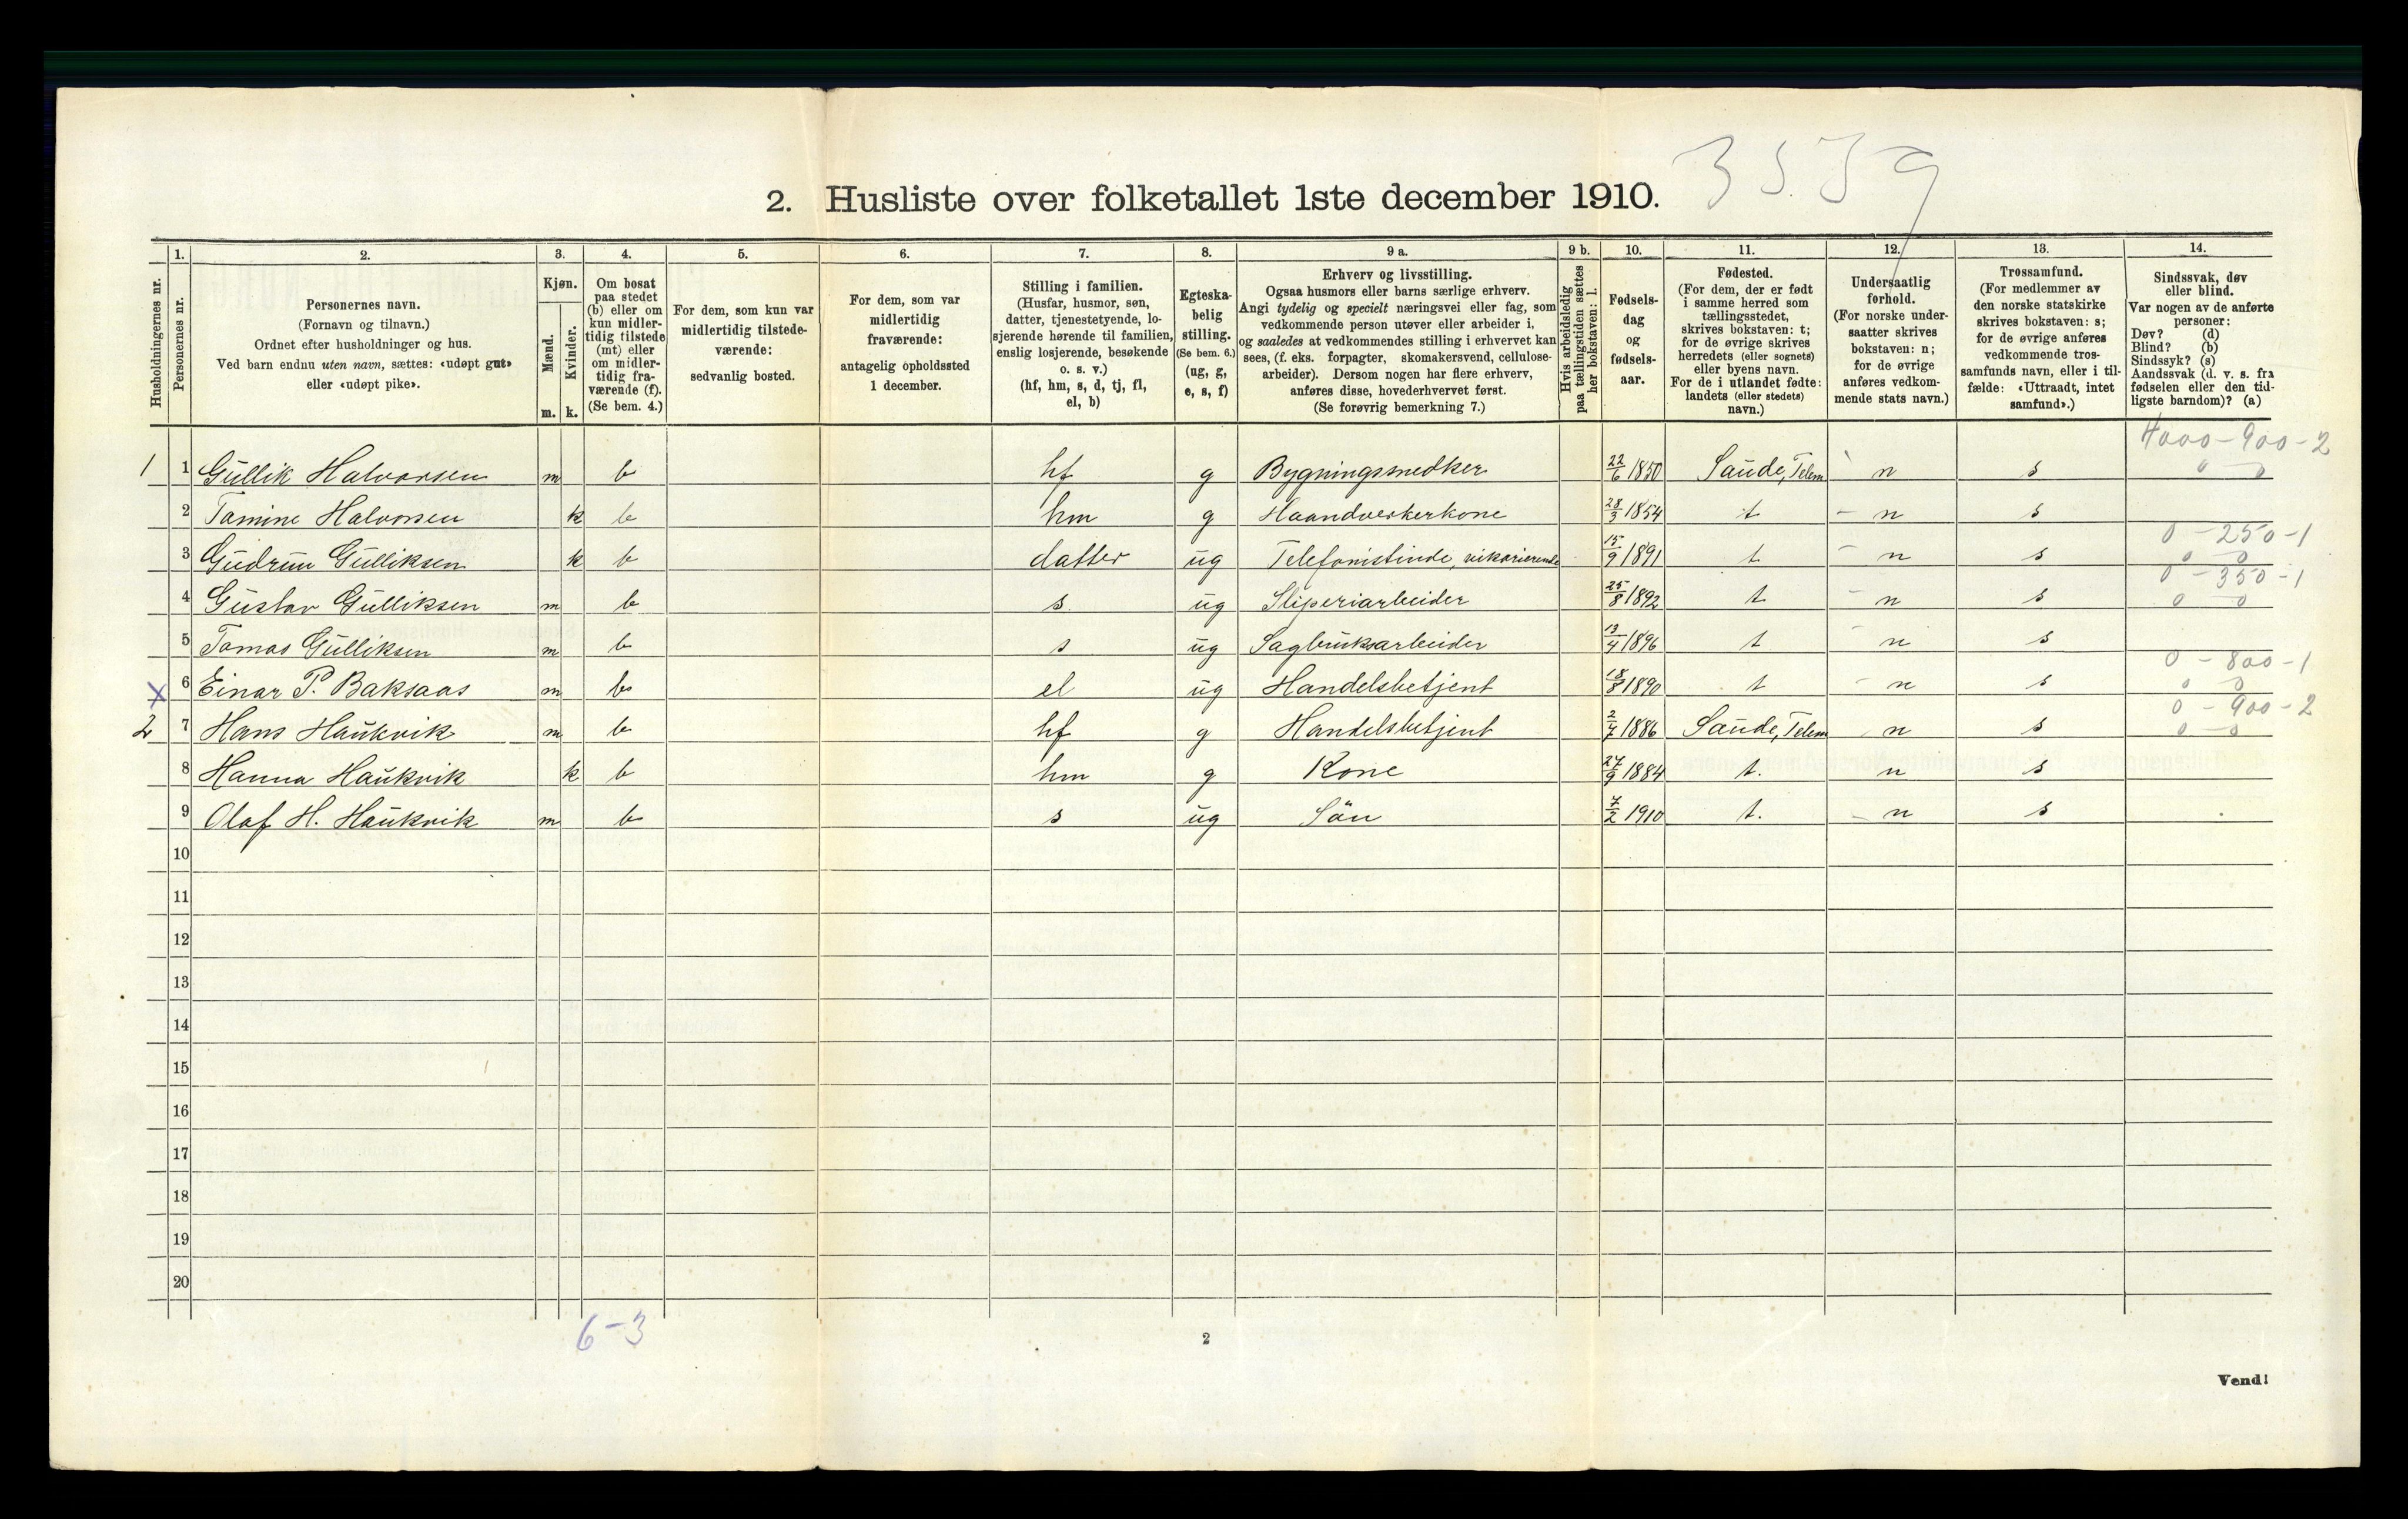 35.39
2. Husliste over folketallet 1ste december 1910.
1. 2. 3. 4. 5. 6. 7. 8. 9 a. 9 b. 10. 11. 12. 13. 14.
Husholdningernes nr.
Personernes nr.
Personernes navn.
(Fornavn og tilnavn.)
Ordnet efter husholdninger og hus.
Ved barn endnu uten navn, sættes: «udøpt gut»
eller «udøpt pike».
Kjøn.
Mænd.
Kvinder.
m. k.
Om bosat
paa stedet
(b) eller om
kun midler-
tidig tilstede
(mt) eller
om midler-
tidig fra-
værende (f).
(Se bem. 4.)
For dem, som kun var
midlertidig tilstede-
værende:
sedvanlig bosted.
For dem, som var
midlertidig
fraværende:
antagelig opholdssted
1 december.
Stilling i familien.
(Husfar, husmor, søn,
datter, tjenestetyende, lo-
sjerende hørende til familien,
enslig losjerende, besøkende
o. s. v.)
(hf, hm, s, d, tj, fl,
el, b)
Egteska-
belig
stilling.
(Se bem. 6.)
(ug, g,
e, s, f)
Erhverv og livsstilling.
Ogsaa husmors eller barns særlige erhverv.
Angi tydelig og specielt næringsvei eller fag, som
vedkommende person utøver eller arbeider i,
og saaledes at vedkommendes stilling i erhvervet kan
sees, (f. eks. forpagter, skomakersvend, cellulose-
arbeider). Dersom nogen har flere erhverv,
anføres disse, hovederhvervet først.
(Se forøvrig bemerkning 7.)
Hvis arbeidsledig
paa tællingstiden sættes
her bokstaven: l.
Fødsels-
dag
og
fødsels-
aar.
Fødested.
(For dem, der er født
i samme herred som
tællingsstedet,
skrives bokstaven: t;
for de øvrige skrives
herredets (eller sognets)
eller byens navn.
For de i utlandet fødte:
landets (eller stedets)
navn.)
Undersaatlig
forhold.
(For norske under-
saatter skrives
bokstaven: n;
for de øvrige
anføres vedkom-
mende stats navn.)
Trossamfund.
(For medlemmer av
den norske statskirke
skrives bokstaven: s;
for de øvrige anføres
vedkommende tros-
samfunds navn, eller i til-
fælde: «Uttraadt, intet
samfund».)
Sindssvak, døv
eller blind.
Var nogen av de anførte
personer:
Døv? (d)
Blind? (b)
Sindssyk? (s)
Aandssvak (d. v. s. fra
fødselen eller den tid-
ligste barndom)? (a)
4000-900-2
1 1 Gullik Halvorsen m b hf g Bygningssnedker 22/6 1850 Saude, Telem n s 0 0
2 Tomine Halvorsen k b hm g Haandverkerkone 28/3 1854 t n s
0-250-1
3 Gudrun Gulliksen k b datter ug Telefonistinde, vikarierende 15/9 1891 t n s 0 0
0-350-1
4 Gustav Gulliksen m b s ug Sliperiarbeider 25/8 1892 t n s 0 0
5 Tomas Gulliksen m b s ug Sagbruksarbeider 13/4 1896 t n s
0-800-1
x 6 Einar P. Baksaas m b el ug Handelsbetjent 18/8 1890 t n s 0 0
0-900-2
2 7 Hans Haukvik m b hf g Handelsbetjent 2/7 1886 Saude, Telem n s 0 0
8 Hanna Haukvik k b hm g Kone 27/9 1884 t. n s
9 Olaf H. Haukvik m b s ug Søn 7/2 1910 t. n s
10
11
12
13
14
15
16
17
18
19
20
6-3
2
Vend!